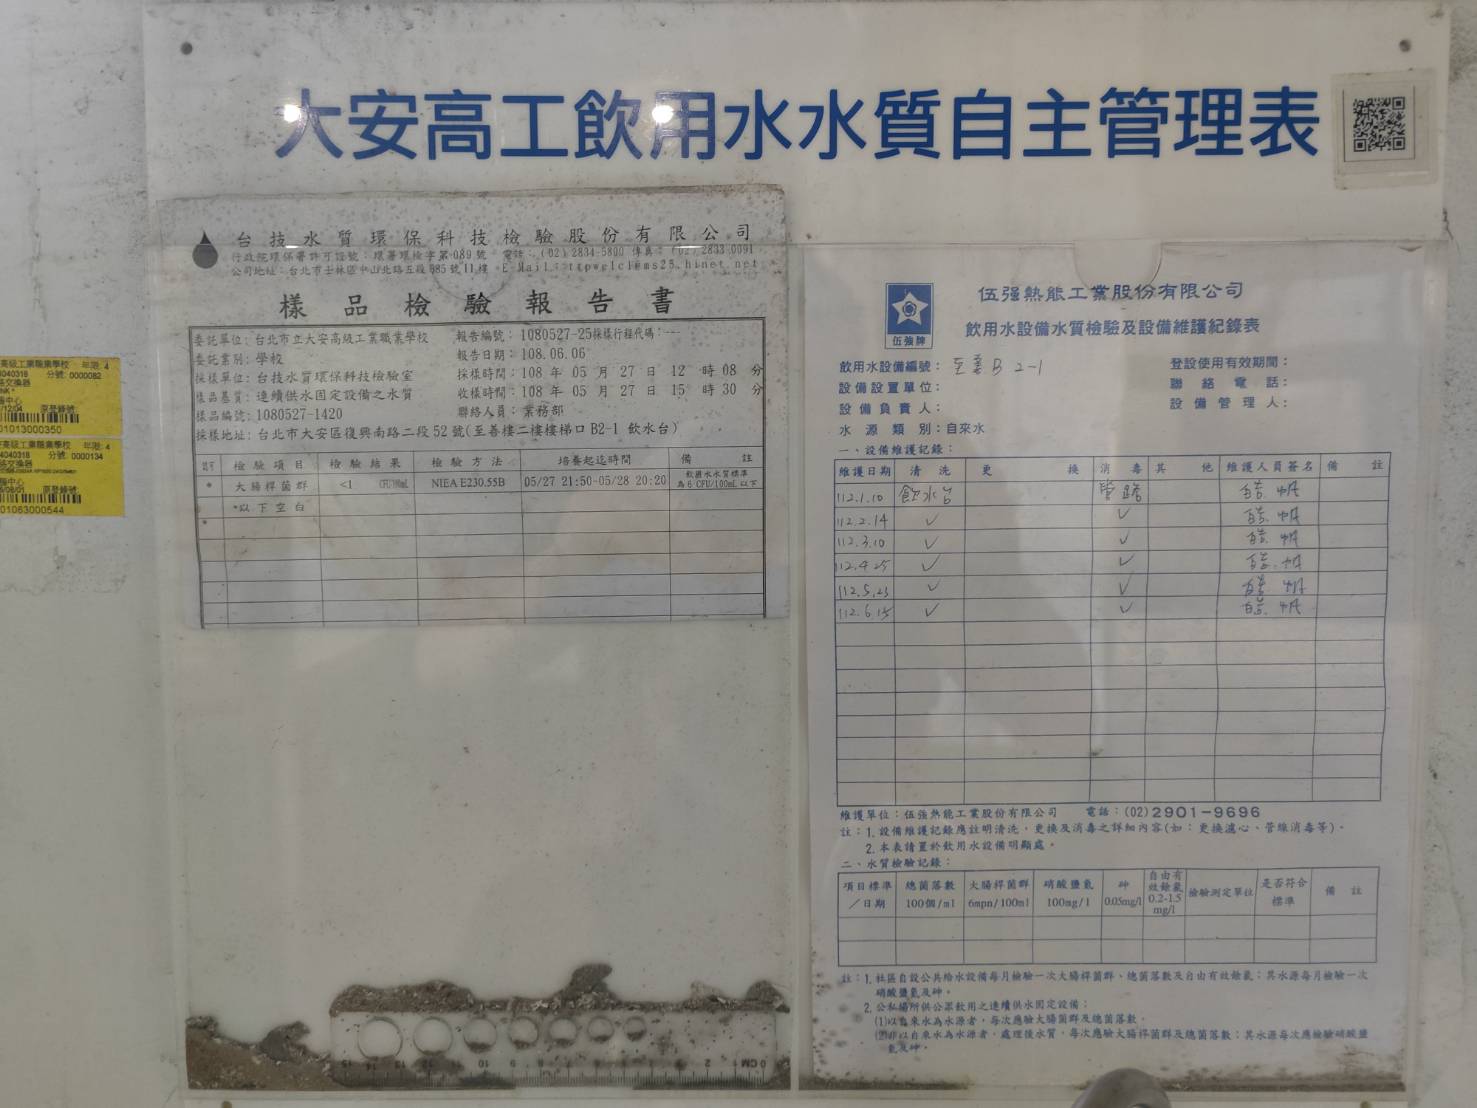 大安高工飲用水水質自主管理表
台技水質環保科技檢驗股份有限公司
行政院環保署許可證號：環署環檢字第089號 電話：(02)2834-5800 傳真：(02)2833-0091
公司地址：台北市士林區中山北路五段885號11樓 E-Mail：ttpwelcl@ms25.hinet.net
樣品檢驗報告書
委託單位：台北市立大安高級工業職業學校 報告編號：1080527-25採樣行程代碼：---
委託業別：學校 報告日期：108.06.06
採樣單位：台技水質環保科技檢驗室 採樣時間：108 年 05 月 27 日 12 時 08 分
樣品基質：連續供水固定設備之水質 收樣時間：108 年 05 月 27 日 15 時 30 分
樣品編號：1080527-1420 聯絡人員：業務部
採樣地址：台北市大安區復興南路二段52號(至善樓二樓樓梯口 B2-1 飲水台)
檢驗項目 檢驗結果 檢驗方法 培養起迄時間 備註
* 大腸桿菌群 <1 CFU/100mL NIEA E230.55B 05/27 21:50-05/28 20:20 飲用水水質標準
為 6 CFU/100mL 以下
*以下空白
*
伍強牌
伍强熱能工業股份有限公司
飲用水設備水質檢驗及設備維護紀錄表
飲用水設備編號：至善B 2-1 登設使用有效期間：
設備設置單位： 聯絡電話：
設備負責人： 設備管理人：
水源類別：自來水
一、設備維護記錄：
維護日期 清洗 更換 消毒 其他 維護人員簽名 備註
112.1.10 飲水台 管路
112.2.14 ✓ ✓
112.3.10 ✓ ✓
112.4.25 ✓ ✓
112.5.23 ✓ ✓
112.6.15 ✓ ✓
維護單位：伍強熱能工業股份有限公司 電話：(02)2901-9696
註：1.設備維護記錄應註明清洗、更換及消毒之詳細內容(如：更換濾心、管線消毒等)。
2.本表請置於飲用水設備明顯處。
二、水質檢驗記錄：
項目標準／日期 總菌落數 100個/ml 大腸桿菌群 6mpn/100ml 硝酸鹽氮 100mg/l 砷 0.05mg/l 自由有效餘氯 0.2-1.5 mg/l 檢驗測定單位 是否符合標準 備註
註：1.社區自設公共給水設備每月檢驗一次大腸桿菌群、總菌落數及自由有效餘氯；其水源每月檢驗一次
硝酸鹽氮及砷。
2.公私場所供公眾飲用之連續供水固定設備：
(1)以自來水為水源者，每次應驗大腸菌群及總菌落數。
(2)非以自來水為水源者，處理後水質，每次應驗大腸桿菌群及總菌落數；其水源每次應檢驗硝酸鹽
氮及砷。
高級工業職業學校 年限: 4
4040318 分號: 0000082
路交換器
12/04 原登錄號:
01013000350
高級工業職業學校 年限: 4
4040318 分號: 0000134
路交換器
原登錄號:
01063000544
15 14 13 12 11 10 9 8 7 6 5 4 3 2 1 CM 0